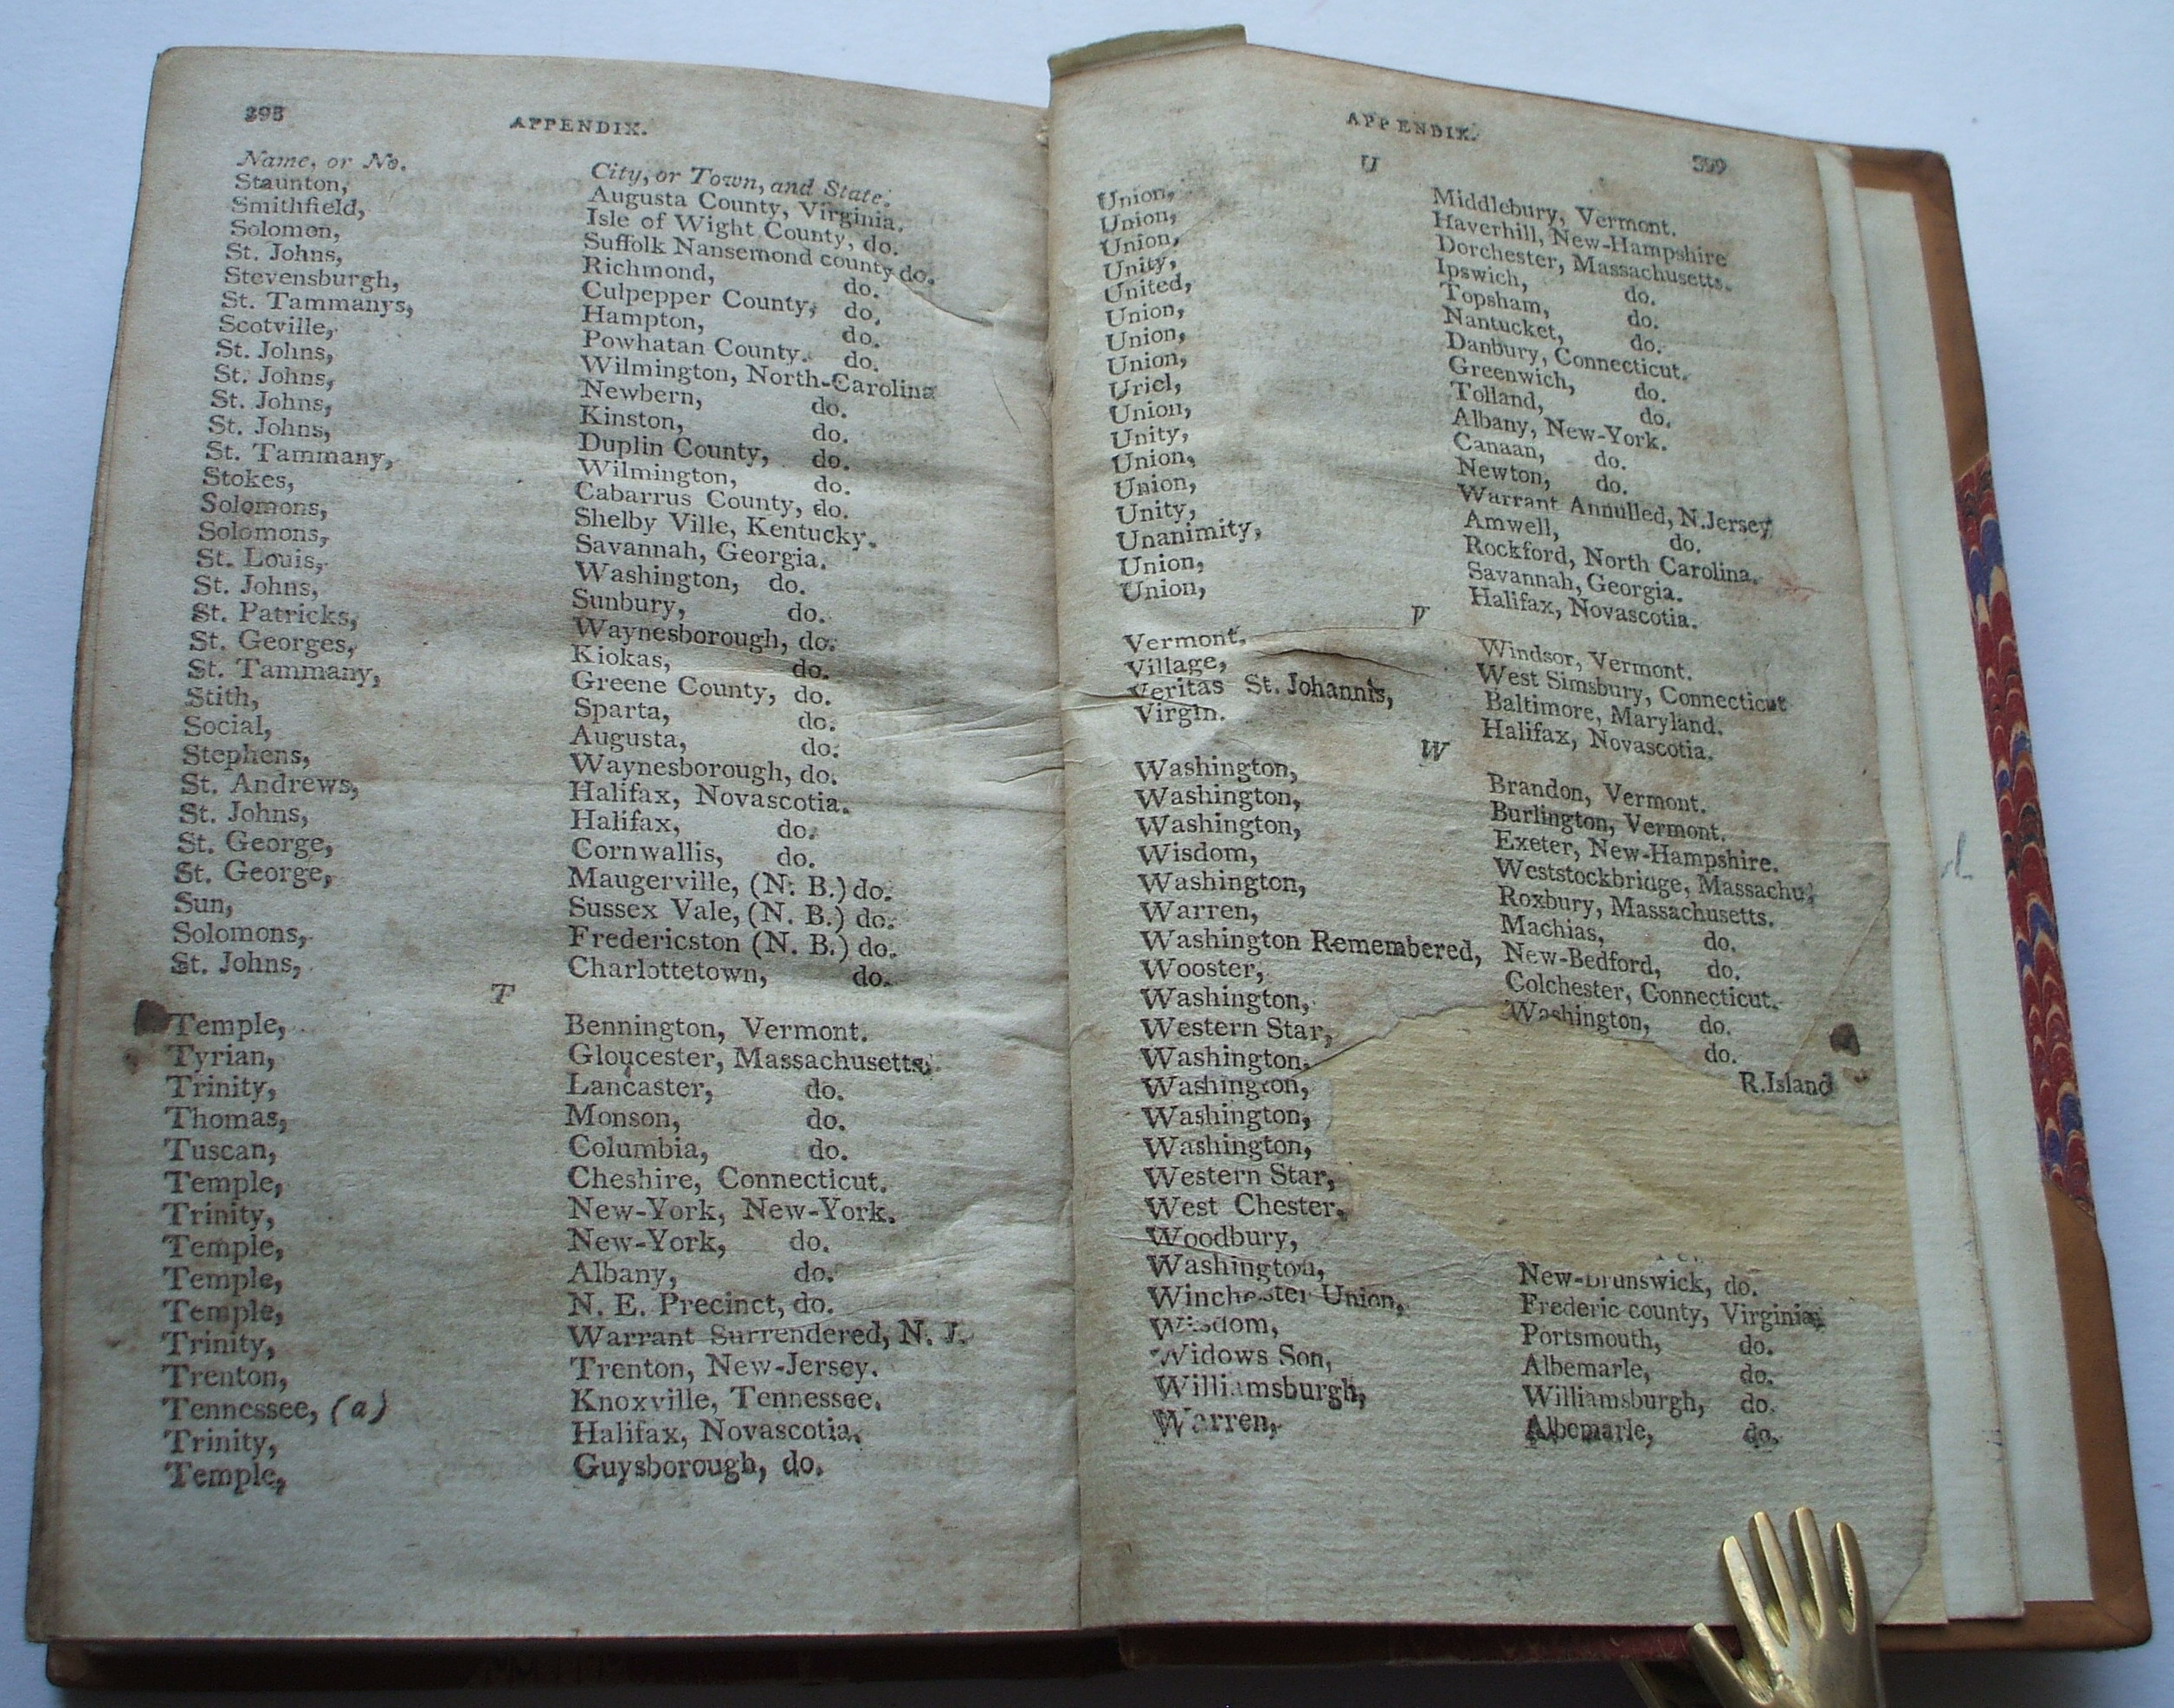 398 APPENDIX.
Name, or No. City, or Town, and State.
Staunton, Augusta County, Virginia.
Smithfield, Isle of Wight County, do.
Solomon, Suffolk Nansemond county do.
St. Johns, Richmond, do.
Stevensburgh, Culpepper County, do.
St. Tammanys, Hampton, do.
Scotville, Powhatan County. do.
St. Johns, Wilmington, North-Carolina
St. Johns, Newbern, do.
St. Johns, Kinston, do.
St. Johns, Duplin County, do.
St. Tammany, Wilmington, do.
Stokes, Cabarrus County, do.
Solomons, Shelby Ville, Kentucky.
Solomons, Savannah, Georgia.
St. Louis, Washington, do.
St. Johns, Sunbury, do.
St. Patricks, Waynesborough, do.
St. Georges, Kiokas, do.
St. Tammany, Greene County, do.
Stith, Sparta, do.
Social, Augusta, do.
Stephens, Waynesborough, do.
St. Andrews, Halifax, Novascotia.
St. Johns, Halifax, do.
St. George, Cornwallis, do.
St. George, Maugerville, (N. B.) do.
Sun, Sussex Vale, (N. B.) do.
Solomons, Fredericston (N. B.) do.
St. Johns, Charlottetown, do.
T
Temple, Bennington, Vermont.
Tyrian, Gloucester, Massachusetts.
Trinity, Lancaster, do.
Thomas, Monson, do.
Tuscan, Columbia, do.
Temple, Cheshire, Connecticut.
Trinity, New-York, New-York.
Temple, New-York, do.
Temple, Albany, do.
Temple, N. E. Precinct, do.
Trinity, Warrant Surrendered, N. J.
Trenton, Trenton, New-Jersey.
Tennessee, (a) Knoxville, Tennessee.
Trinity, Halifax, Novascotia.
Temple, Guysborough, do.
APPENDIX. 399
U
Union, Middlebury, Vermont.
Union, Haverhill, New-Hampshire
Union, Dorchester, Massachusetts.
Unity, Ipswich, do.
United, Topsham, do.
Union, Nantucket, do.
Union, Danbury, Connecticut.
Union, Greenwich, do.
Uriel, Tolland, do.
Union, Albany, New-York.
Unity, Canaan, do.
Union, Newton, do.
Union, Warrant Annulled, N.Jersey
Unity, Amwell, do.
Unanimity, Rockford, North Carolina.
Union, Savannah, Georgia.
Union, Halifax, Novascotia.
V
Vermont, Windsor, Vermont.
Village, West Simsbury, Connecticut
Veritas St. Johannis, Baltimore, Maryland.
Virgin. Halifax, Novascotia.
W
Washington, Brandon, Vermont.
Washington, Burlington, Vermont.
Washington, Exeter, New-Hampshire.
Wisdom, Weststockbridge, Massachu.
Washington, Roxbury, Massachusetts.
Warren, Machias, do.
Washington Remembered, New-Bedford, do.
Wooster, Colchester, Connecticut.
Washington, Washington, do.
Western Star, do.
Washington, R.Island
Washington,
Washington,
Washington,
Western Star,
West Chester,
Woodbury,
Washington, New-Brunswick, do.
Winchester Union, Frederic county, Virginia,
Wisdom, Portsmouth, do.
Widows Son, Albemarle, do.
Williamsburgh, Williamsburgh, do.
Warren, Albemarle, do.